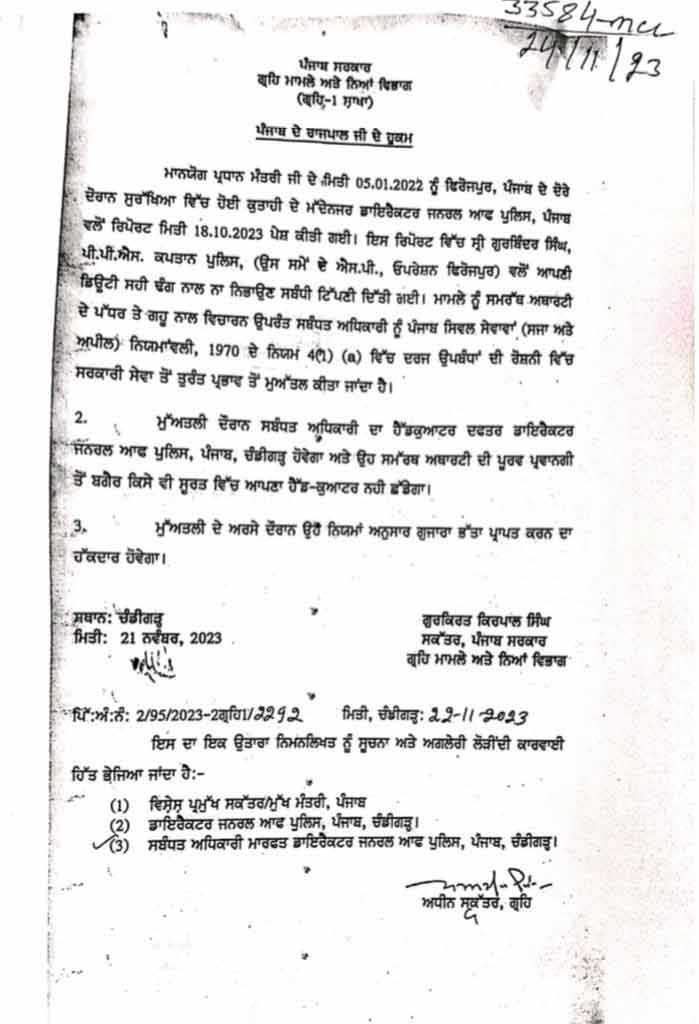 33584-mcc
24/11/23
ਪੰਜਾਬ ਸਰਕਾਰ
ਗ੍ਰਹਿ ਮਾਮਲੇ ਅਤੇ ਨਿਆਂ ਵਿਭਾਗ
(ਗ੍ਰਹਿ-1 ਸ਼ਾਖਾ)
ਪੰਜਾਬ ਦੇ ਰਾਜਪਾਲ ਜੀ ਦੇ ਹੁਕਮ
ਮਾਨਯੋਗ ਪ੍ਰਧਾਨ ਮੰਤਰੀ ਜੀ ਦੇ ਮਿਤੀ 05.01.2022 ਨੂੰ ਫਿਰੋਜਪੁਰ, ਪੰਜਾਬ ਦੇ ਦੌਰੇ
ਦੌਰਾਨ ਸੁਰੱਖਿਆ ਵਿੱਚ ਹੋਈ ਕੁਤਾਹੀ ਦੇ ਮੱਦੇਨਜਰ ਡਾਇਰੈਕਟਰ ਜਨਰਲ ਆਫ ਪੁਲਿਸ, ਪੰਜਾਬ
ਵਲੋਂ ਰਿਪੋਰਟ ਮਿਤੀ 18.10.2023 ਪੇਸ਼ ਕੀਤੀ ਗਈ। ਇਸ ਰਿਪੋਰਟ ਵਿੱਚ ਸ਼੍ਰੀ ਗੁਰਬਿੰਦਰ ਸਿੰਘ,
ਪੀ.ਪੀ.ਐਸ. ਕਪਤਾਨ ਪੁਲਿਸ, (ਉਸ ਸਮੇਂ ਦੇ ਐਸ.ਪੀ., ਓਪਰੇਸ਼ਨ ਫਿਰੋਜਪੁਰ) ਵਲੋਂ ਆਪਣੀ
ਡਿਊਟੀ ਸਹੀ ਢੰਗ ਨਾਲ ਨਾ ਨਿਭਾਉਣ ਸਬੰਧੀ ਟਿੱਪਣੀ ਦਿੱਤੀ ਗਈ। ਮਾਮਲੇ ਨੂੰ ਸਮਰੱਥ ਅਥਾਰਟੀ
ਦੇ ਪੱਧਰ ਤੇ ਗਹੁ ਨਾਲ ਵਿਚਾਰਨ ਉਪਰੰਤ ਸਬੰਧਤ ਅਧਿਕਾਰੀ ਨੂੰ ਪੰਜਾਬ ਸਿਵਲ ਸੇਵਾਵਾਂ (ਸਜਾ ਅਤੇ
ਅਪੀਲ) ਨਿਯਮਾਂਵਲੀ, 1970 ਦੇ ਨਿਯਮ 4(1) (a) ਵਿੱਚ ਦਰਜ ਉਪਬੰਧਾਂ ਦੀ ਰੋਸ਼ਨੀ ਵਿੱਚ
ਸਰਕਾਰੀ ਸੇਵਾ ਤੋਂ ਤੁਰੰਤ ਪ੍ਰਭਾਵ ਤੋਂ ਮੁਅੱਤਲ ਕੀਤਾ ਜਾਂਦਾ ਹੈ।
2. ਮੁੱਅਤਲੀ ਦੌਰਾਨ ਸਬੰਧਤ ਅਧਿਕਾਰੀ ਦਾ ਹੈੱਡਕੁਆਟਰ ਦਫਤਰ ਡਾਇਰੈਕਟਰ
ਜਨਰਲ ਆਫ ਪੁਲਿਸ, ਪੰਜਾਬ, ਚੰਡੀਗੜ੍ਹ ਹੋਵੇਗਾ ਅਤੇ ਉਹ ਸਮੱਰਥ ਅਥਾਰਟੀ ਦੀ ਪੂਰਵ ਪ੍ਰਵਾਨਗੀ
ਤੋਂ ਬਗੈਰ ਕਿਸੇ ਵੀ ਸੂਰਤ ਵਿੱਚ ਆਪਣਾ ਹੈੱਡ-ਕੁਆਟਰ ਨਹੀ ਛੱਡੇਗਾ।
3. ਮੁੱਅਤਲੀ ਦੇ ਅਰਸੇ ਦੌਰਾਨ ਉਹੈ ਨਿਯਮਾਂ ਅਨੁਸਾਰ ਗੁਜਾਰਾ ਭੱਤਾ ਪ੍ਰਾਪਤ ਕਰਨ ਦਾ
ਹੱਕਦਾਰ ਹੋਵੇਗਾ।
ਸਥਾਨ: ਚੰਡੀਗੜ੍ਹ
ਮਿਤੀ: 21 ਨਵੰਬਰ, 2023
ਗੁਰਕਿਰਤ ਕਿਰਪਾਲ ਸਿੰਘ
ਸਕੱਤਰ, ਪੰਜਾਬ ਸਰਕਾਰ
ਗ੍ਰਹਿ ਮਾਮਲੇ ਅਤੇ ਨਿਆਂ ਵਿਭਾਗ
ਪਿੱ:ਅੰ:ਨੰ: 2/95/2023-2ਗ੍ਰਹਿ1/2292 ਮਿਤੀ, ਚੰਡੀਗੜ੍ਹ: 22-11-2023
ਇਸ ਦਾ ਇਕ ਉਤਾਰਾ ਨਿਮਨਲਿਖਤ ਨੂੰ ਸੂਚਨਾ ਅਤੇ ਅਗਲੇਰੀ ਲੋੜੀਂਦੀ ਕਾਰਵਾਈ
ਹਿੱਤ ਭੇਜਿਆ ਜਾਂਦਾ ਹੈ:-
(1) ਵਿਸ਼ੇਸ਼ ਪ੍ਰਮੁੱਖ ਸਕੱਤਰ/ਮੁੱਖ ਮੰਤਰੀ, ਪੰਜਾਬ
(2) ਡਾਇਰੈਕਟਰ ਜਨਰਲ ਆਫ ਪੁਲਿਸ, ਪੰਜਾਬ, ਚੰਡੀਗੜ੍ਹ।
(3) ਸਬੰਧਤ ਅਧਿਕਾਰੀ ਮਾਰਫਤ ਡਾਇਰੈਕਟਰ ਜਨਰਲ ਆਫ ਪੁਲਿਸ, ਪੰਜਾਬ, ਚੰਡੀਗੜ੍ਹ।
ਅਧੀਨ ਸਕੱਤਰ, ਗ੍ਰਹਿ